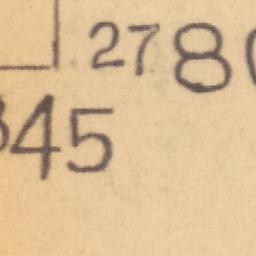 2780
345